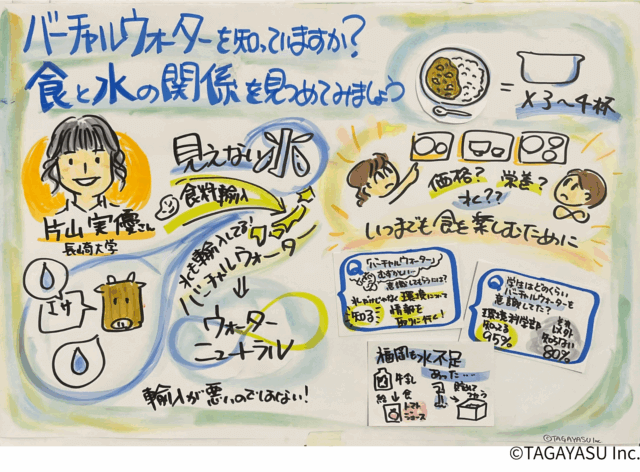 バーチャルウォーターを知っていますか?
食と水の関係を見つめてみましょう
= ×3〜4杯
片山実優さん
長崎大学
見えない水
食料輸入
水も輸入してる!
バーチャルウォータ
ウォーター
ニュートラル
エサ
輸入が悪いのではない!
価格? 栄養?
水??
いつまでも食を楽しむために
Q バーチャルウォーター
むずかしい…
意識してもらうには?
水だけじゃなく環境について
知る!
情報を
取りに行く!
Q 学生はどのくらい
バーチャルウォーターを
意識してた?
環境科学部
知ってる
95%
以外
知らない
80%
福岡も水不足
あった…
牛乳
給食
トマト
ジュース
©TAGAYASU Inc
©TAGAYASU Inc.